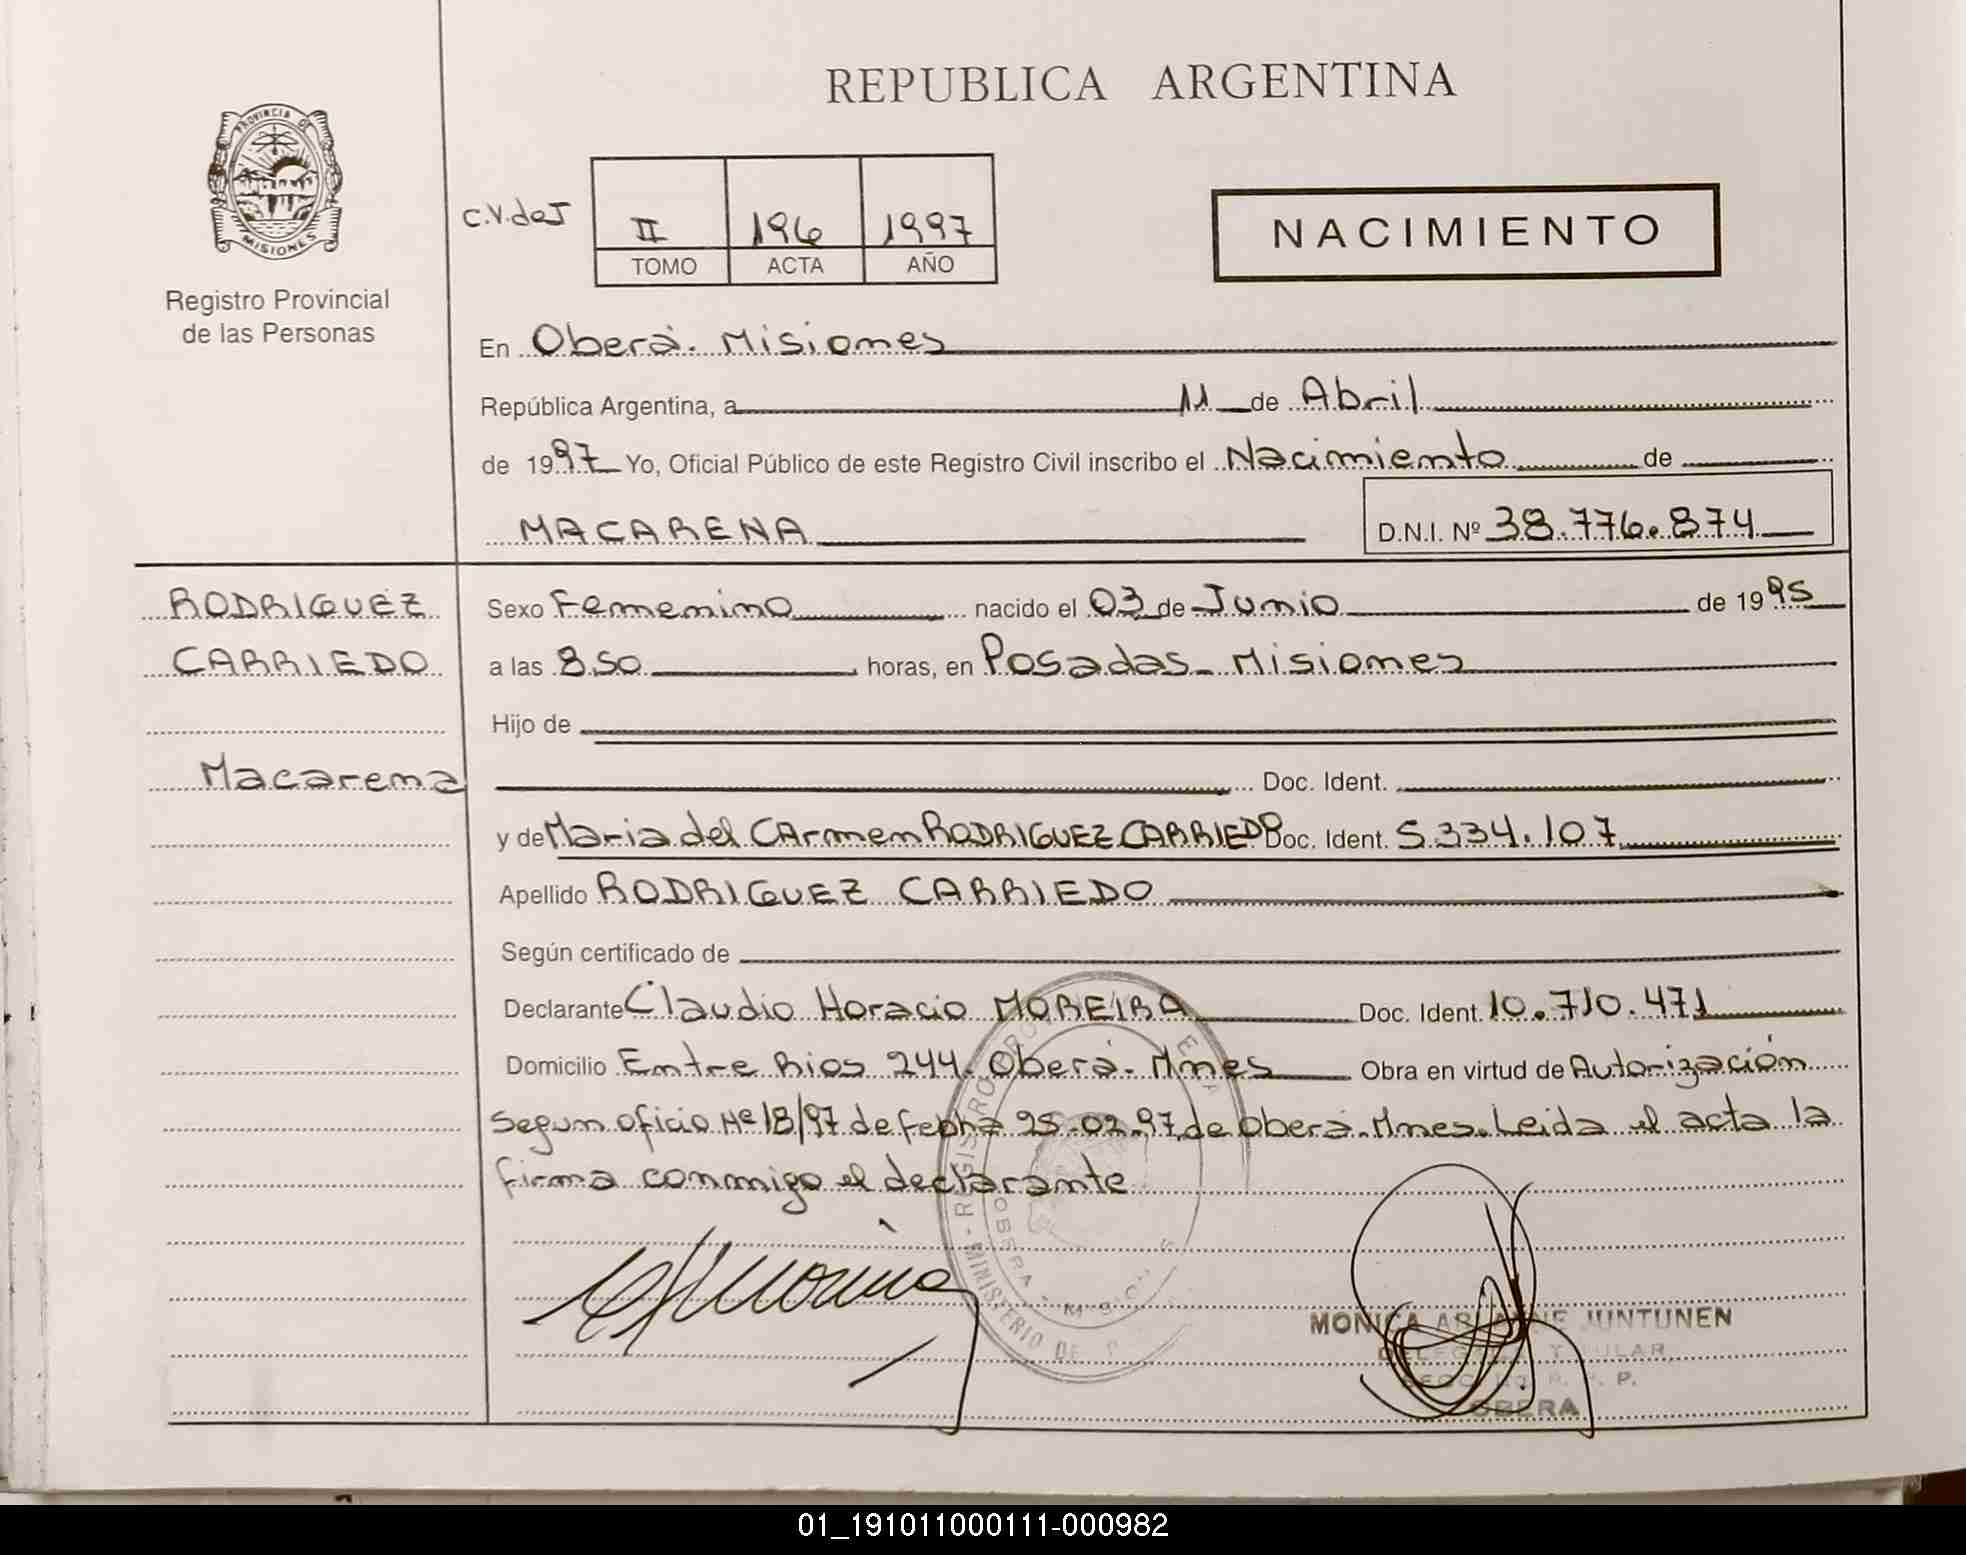 REPUBLICA ARGENTINA
PROVINCIA DE
MISIONES
Registro Provincial
de las Personas
C.V.deJ
II 196 1997
TOMO ACTA AÑO
NACIMIENTO
En Oberá. Misiones
República Argentina, a 11 de Abril
de 1997 Yo, Oficial Público de este Registro Civil inscribo el Nacimiento de
MACARENA D.N.I. Nº 38.776.874
RODRIGUEZ
CARRIEDO
Macarena
Sexo Femenino nacido el 03 de Junio de 1995
a las 8.50 horas, en Posadas - Misiones
Hijo de
Doc. Ident.
y de Maria del CArmen RODRIGUEZ CARRIEDO Doc. Ident. 5.334.107
Apellido RODRIGUEZ CARRIEDO
Según certificado de
Declarante Claudio Horacio MOREIRA Doc. Ident. 10.710.471
Domicilio Entre Rios 244. Oberá - Mnes Obra en virtud de Autorización
Segun oficio Nº 18/97 de fecha 25-02-97 de Oberá. Mnes. Leida el acta la
firma conmigo el declarante
REGISTRO
MINISTERIO DE
OBERA
MONICA JUNTUNEN
OBERA
01_191011000111-000982